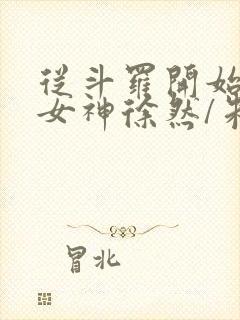 從斗羅開始
女神徐然/朱
冒北